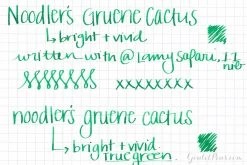 Noodler's Gruene Cactus
↳ bright + vivid
written with @ Lamy Safari, 1.1 nib
xxxxxxxx
noodler's gruene cactus
↳ bright + vivid
true green